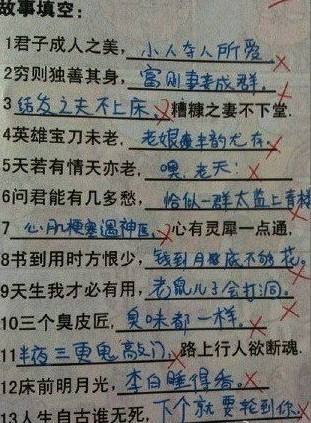 故事填空：
1君子成人之美，小人夺人所爱
2穷则独善其身，富则妻妾成群。
3结发之夫不上床、糟糠之妻不下堂.
4英雄宝刀未老，老娘风韵尤存.
5天若有情天亦老，噢.老天：
6问君能有几多愁，恰似一群太监上青楼
7心肌梗塞遇神医、心有灵犀一点通，
8书到用时方恨少，钱到月底不够花。
9天生我才必有用，老鼠儿子会打洞。
10三个臭皮匠，臭味都一样。
11半夜三更鬼敲门、路上行人欲断魂.
12床前明月光，李白睡得香。
13人生自古谁无死，下个就要轮到你.